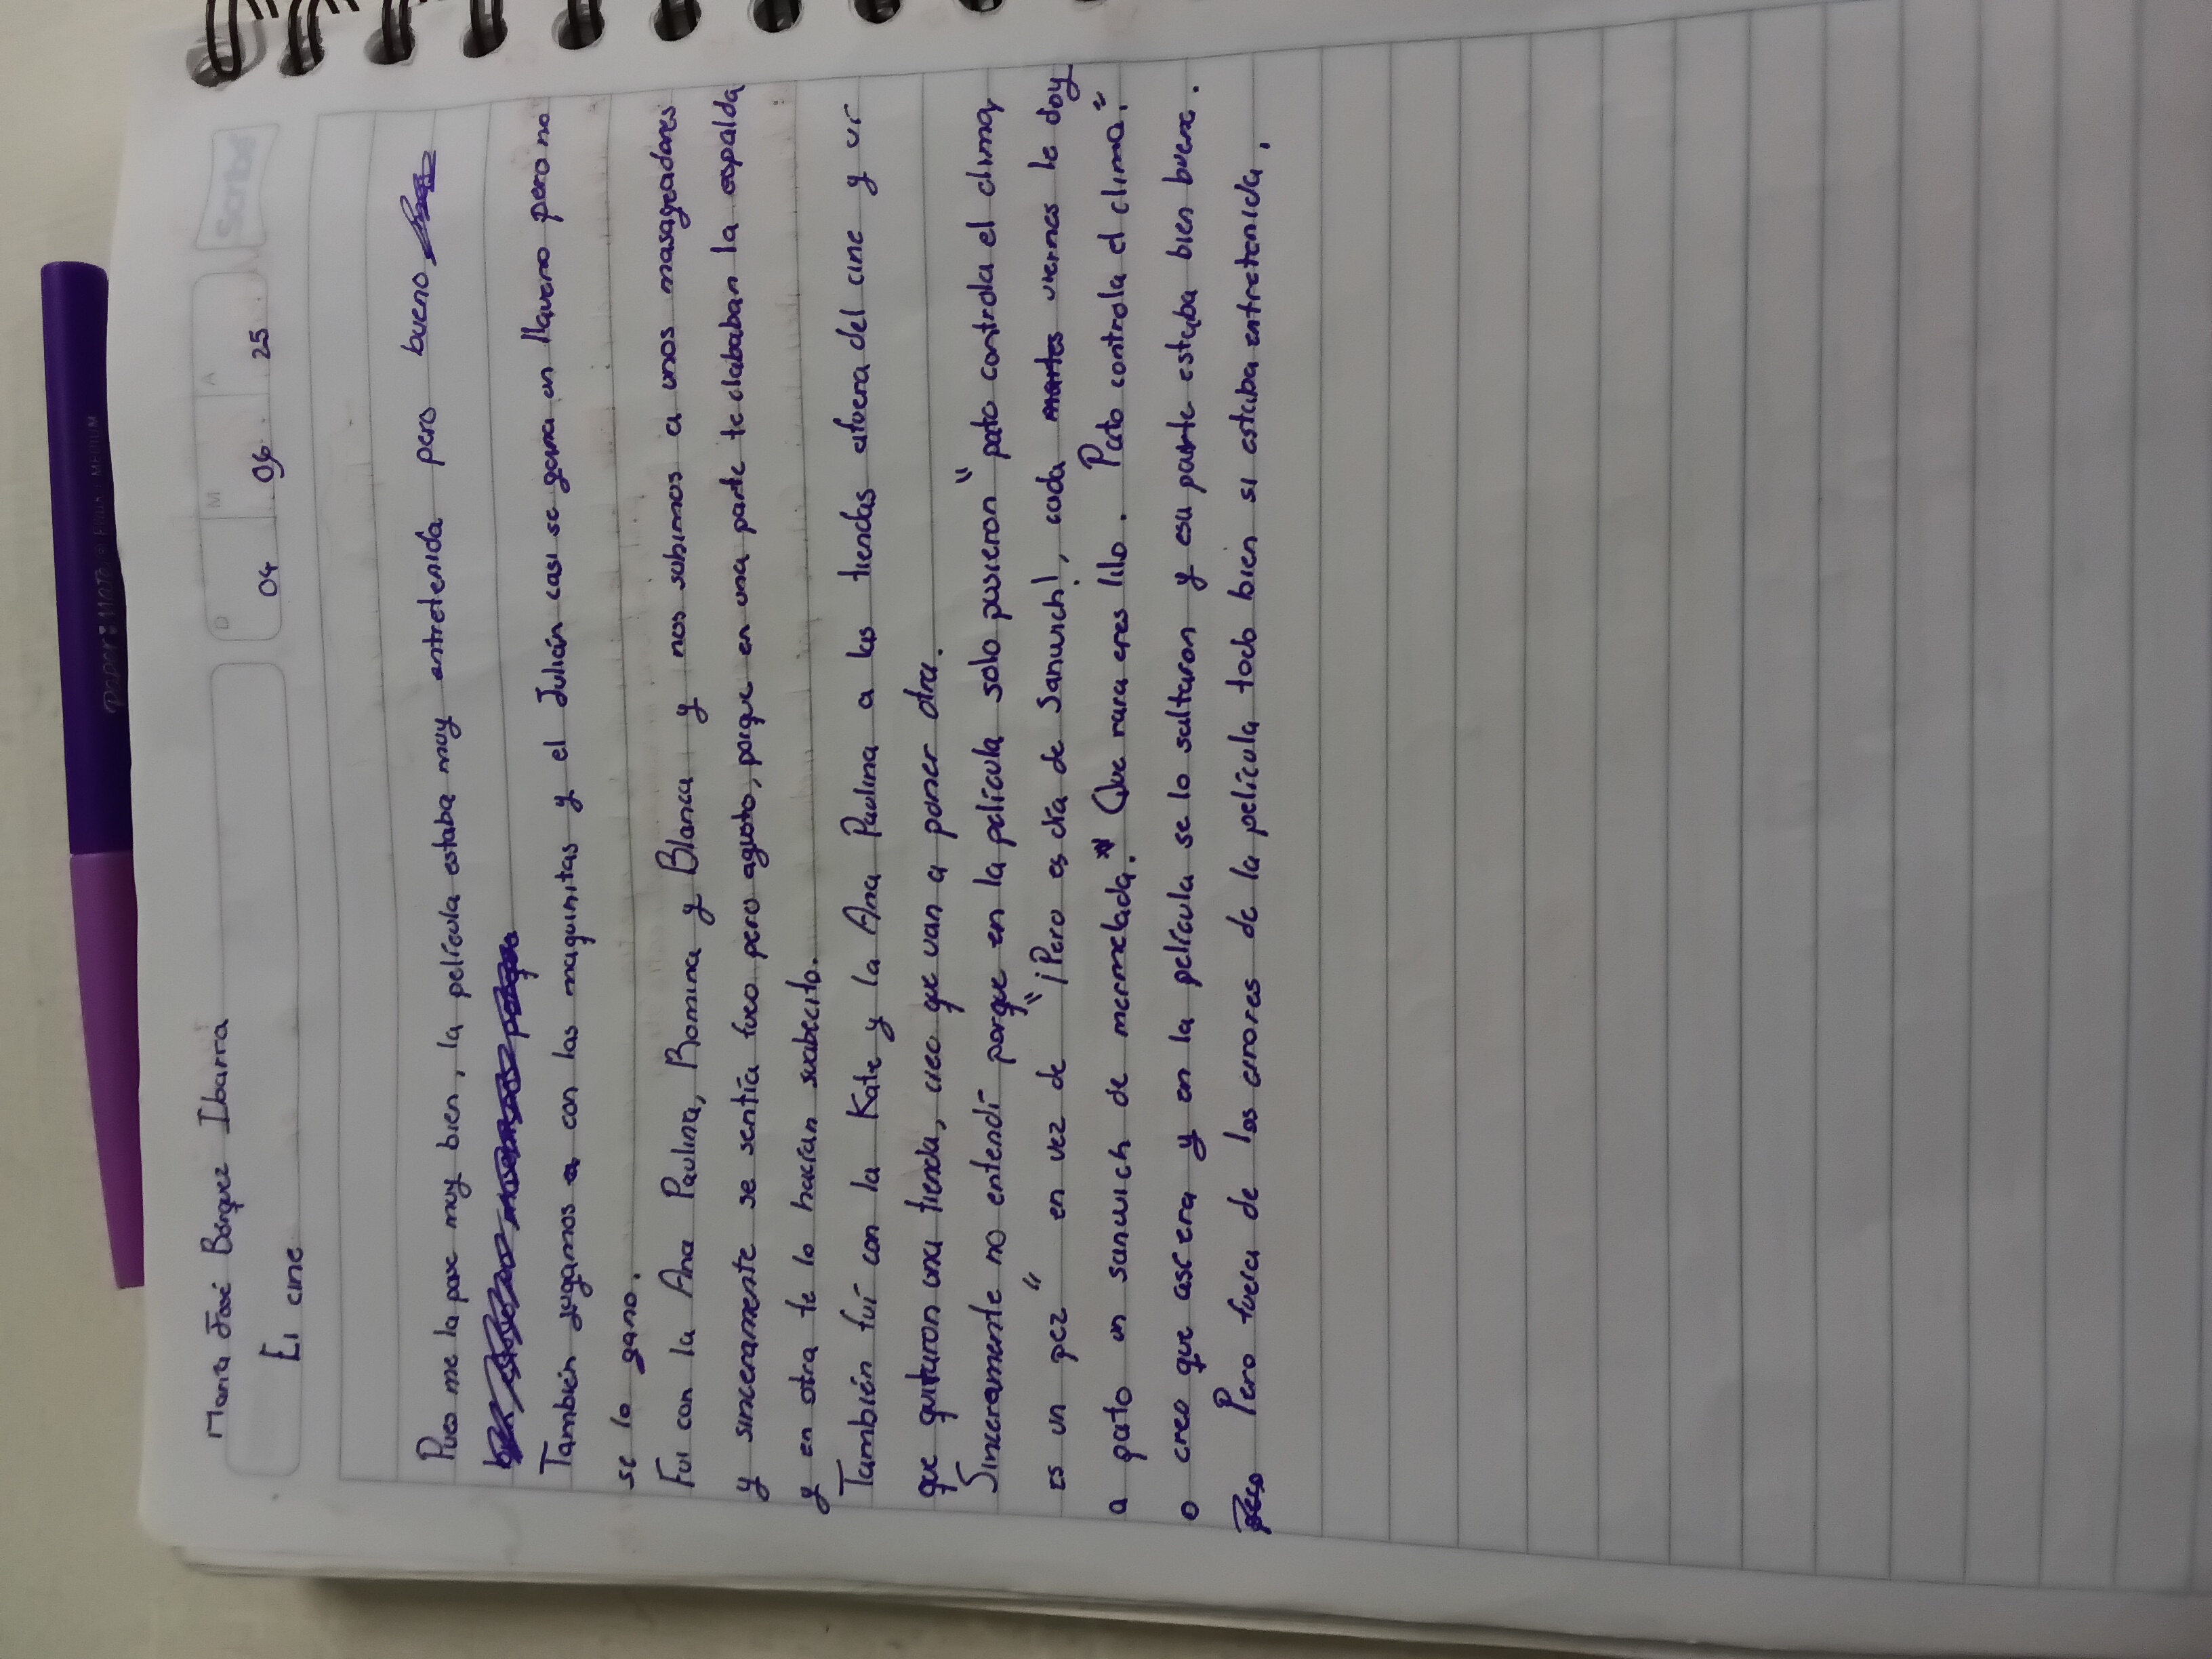 Maria José Bórquez Ibarra
El cine
D M A
04 06 25
Scribe
Pues me la pase muy bien, la película estaba muy entretenida pero bueno
También jugamos con las maquinitas y el Julián casi se gana un llavero pero no
se lo gano.
Fui con la Ana Paulina, Romina y Blanca y nos subimos a unos masageadores
y sinceramente se sentía fuco pero agusto, porque en una parte te clababan la espalda
y en otra te lo hacían suabecito.
También fuí con la Kate y la Ana Paulina a las tiendas afuera del cine y vr
que quitaron una tienda, creo que van a poner otra.
Sinceramente no entendí porque en la película solo pusieron "pato controla el clima,
es un pez" en vez de "¡Pero es día de Sanwich!, cada martes viernes le doy
a pato un sanwich de mermelada." Que rara eres lilo. Pato controla el clima."
o creo que asi era y en la película se lo saltaron y esa parte estaba bien buena.
Pero fuera de los errores de la película todo bien si estaba entretenida.